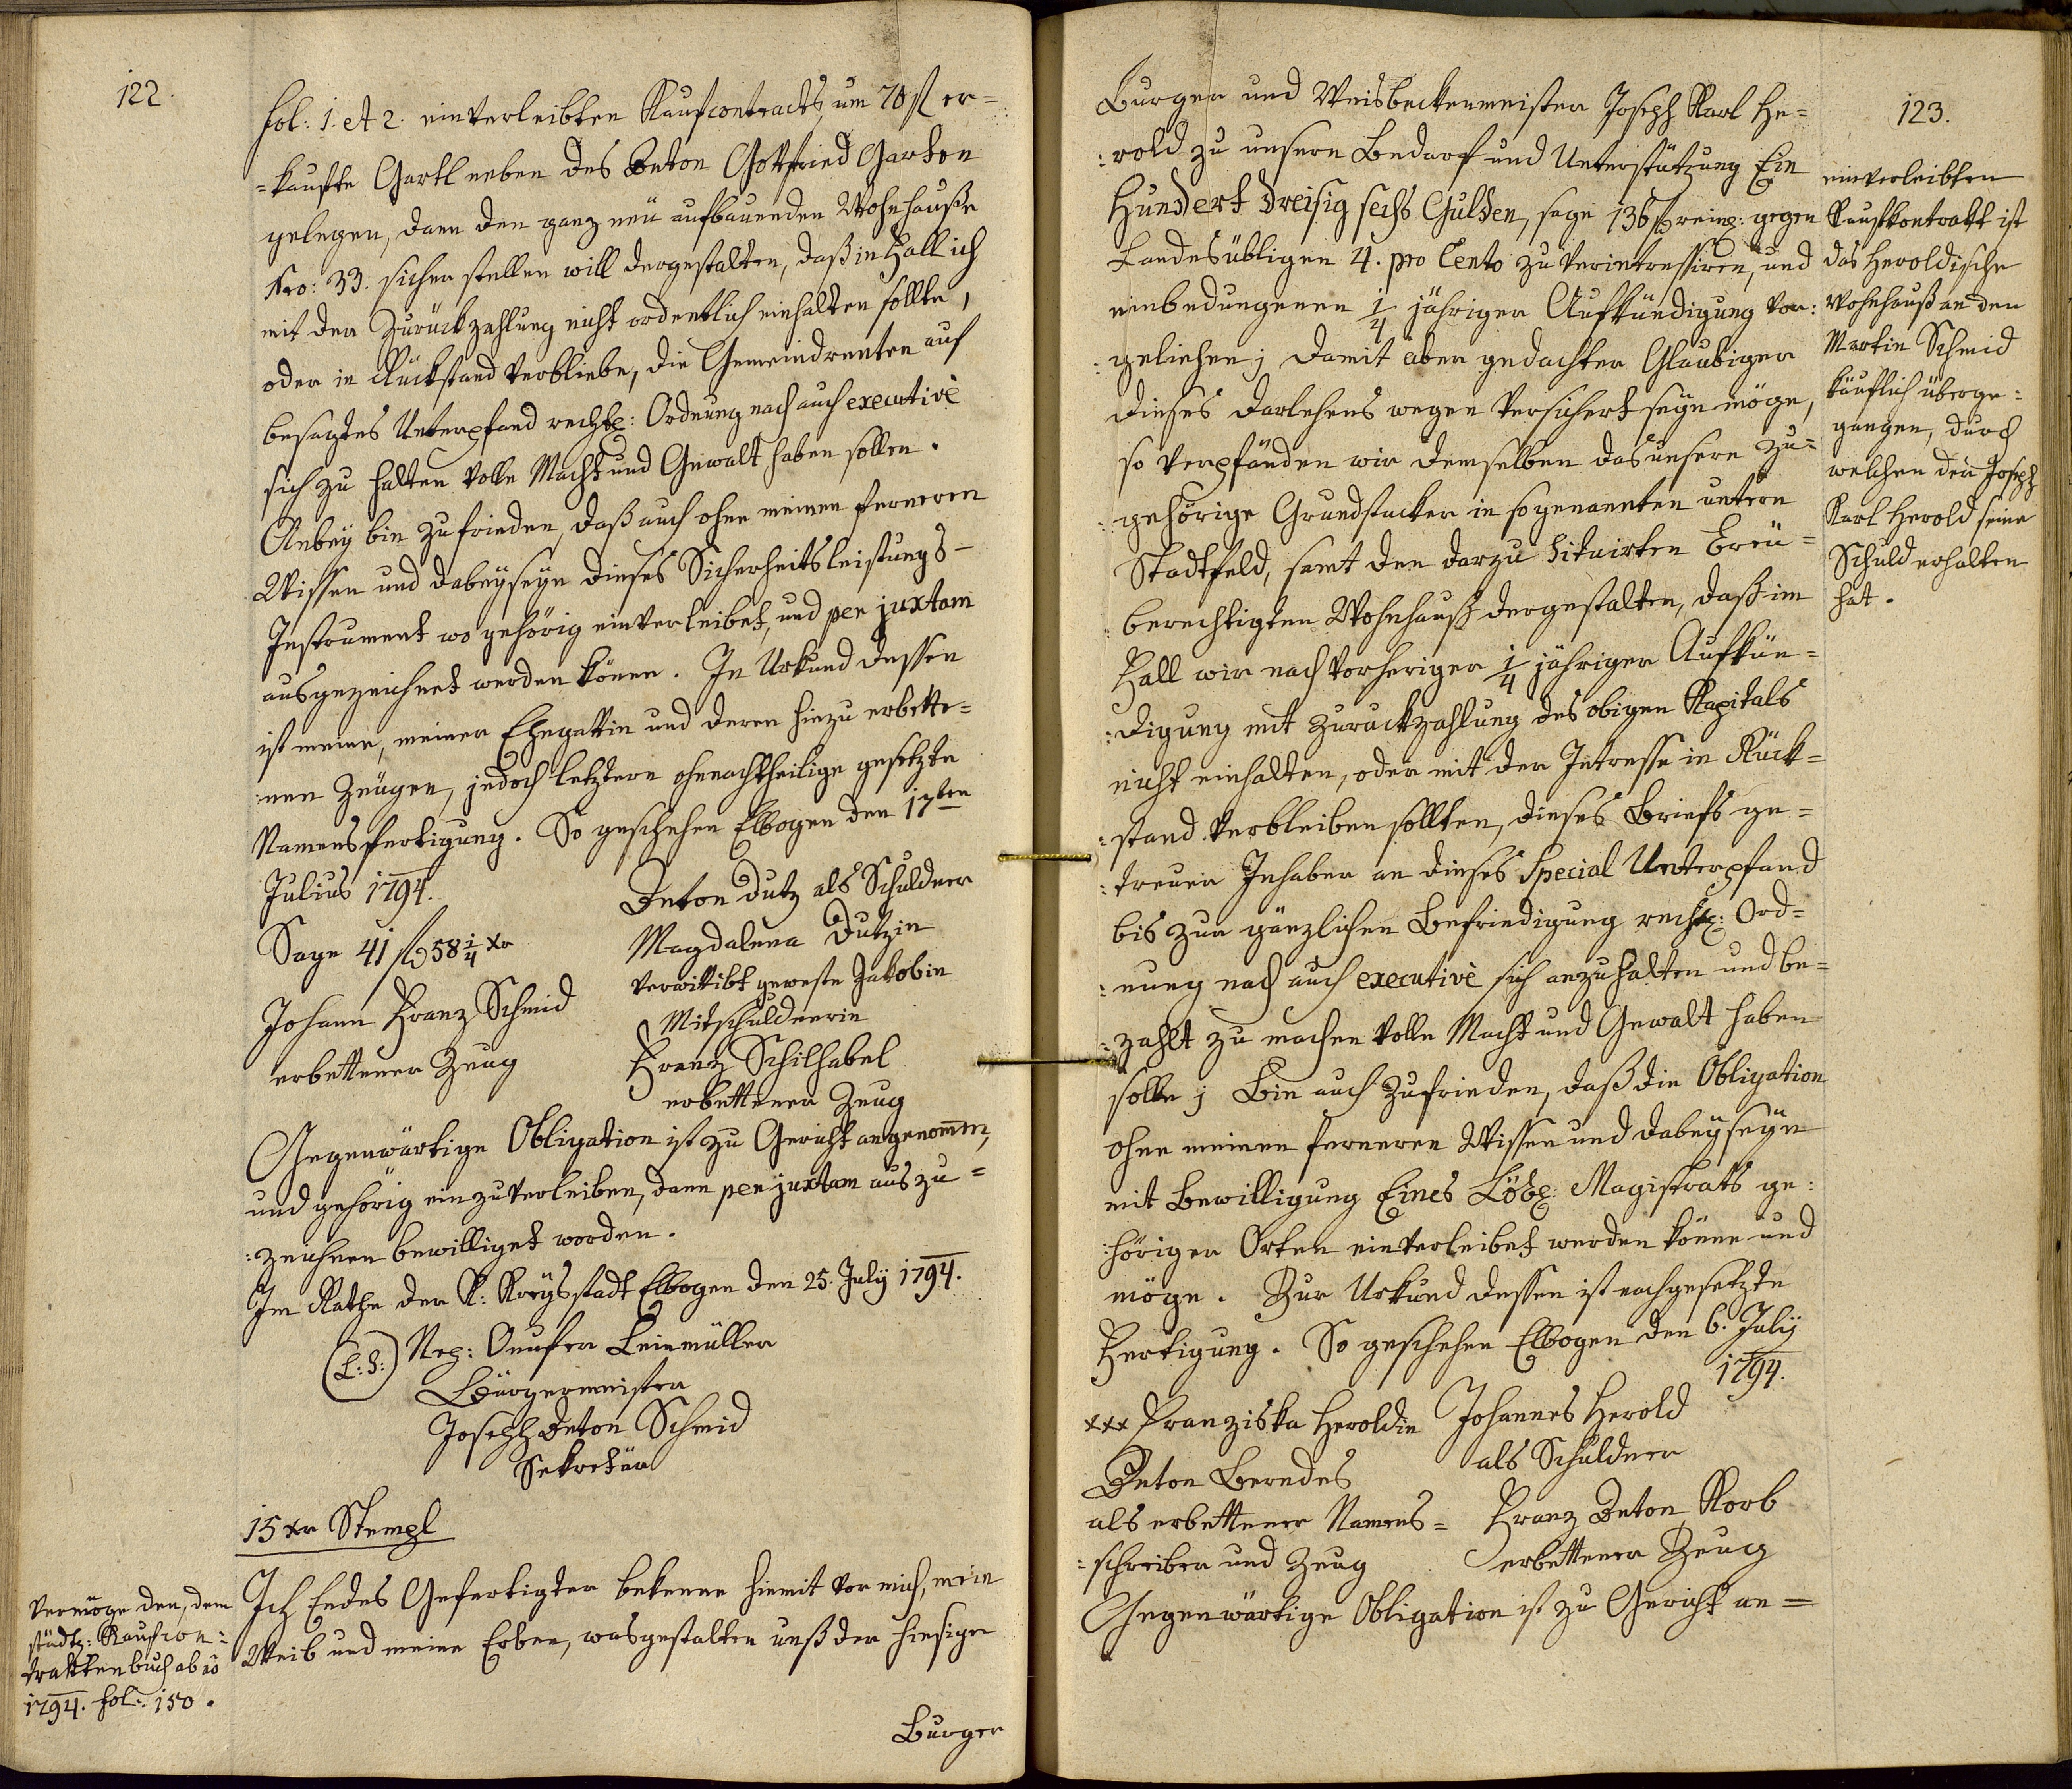 122.
fol: 1. et 2. einverleibten Kaufcontracts, um 70 fl er=
=kaufte Gartl neben des Anton Gottfried Garten
gelegen, dann den ganz neü aufbauenden Wohnhauße
Nro: 33. sicher stellen will dergestalten, daß in Fall ich
mit der Zurückzahlung nicht ordentlich einhalten sollte,
oder in Rückstand verbliebe, die Gemeindrenten auf
besagtes Unterpfand rechtl: Ordnung nach auch executivè
sich zu halten volle Macht und Gewalt haben sollen.
Anbey bin zufrieden, daß auch ohne meinen ferneren
Wissen und dabeyseyn dieses Sicherheitsleistungs-
Instrument wo gehörig einverleibet, und per juxtam
ausgezeichnet werden könne. In Urkund dessen
ist meine, meiner Ehegattin und deren hiezu erbette=
:nen Zeugen, jedoch letztern ohnnachtheilige gesetzte
Namensfertigung. So geschehen Elbogen den 17ten
Julius 1794.
Anton Dutz als Schuldner
Sage 41 fl 58 1/4 xr
Magdalena Dutzin
verwittibt geweste Jakobin
Mitschuldnerin
Johann Franz Schmid
erbettener Zeug
Franz Schilhabel
erbettener Zeug
Gegenwärtige Obligation ist zu Gericht angenom̄en,
und gehörig einzuverleiben, dann per juxtam auszu=
:zeichnen bewilliget worden.
Im Rathe der K: Kreysstadt Elbogen den 25. July 1794.
(L:S:) Nep: Onufer Leinmüller
Bürgermeister
Joseph Anton Schmid
Sekretär
15 xr Stempl
Ich Endes Gefertigter bekenne hiemit vor mich, mein
Weib und meine Erben, wasgestalten unß der hiesige
Burger
Vermöge den, dem
städt: Kaufcon:
traktenbuch ab aõ
1794. fol: 150.
123.
Burger und Weisbeckenmeister Joseph Karl He=
:rold zu unsern Bedarf und Unterstützung Ein
Hundert dreisig sechs Gulden, sage 136 fl reinl: gegen
Landesübligen 4. pro Cento zu verintressiren, und
einbedungenen 1/4 jähriger Aufkündigung vor:
:geliehen; damit aber gedachter Glaubiger
dieses Darlehens wegen versichert seyn möge,
so verpfänden wir demselben das unsern zu=
:gehörige Grundstucker in sogenannten untern
Stadtfeld, samt den darzu situirten Breü=
:berechtigten Wohnhauß dergestalten, daß im
Fall wir nach vorheriger 1/4 jähriger Aufkün=
:digung mit Zurückzahlung des obigen Kapitals
nicht einhalten, oder mit der Intresse in Rück=
:stand verbleiben sollten, dieses Briefs ge=
:treuer Inhaber an dieses Special Unterpfand
bis zur gänzlichen Befriedigung rechtl: Ord=
:nung nach auch executivè sich anzuhalten und be=
:zahlt zu machen volle Macht und Gewalt haben
solle; Bin auch zufrieden, daß die Obligation
ohne meinen ferneren Wissen und dabeyseyn
mit Bewilligung Eines Löbl: Magistrats ge:
:höriger Orten einverleibet werden könne und
möge. Zur Urkund dessen ist nachgesetzte
Fertigung. So geschehen Elbogen den 6. July
1794.
xxx Franziska Heroldin
Johannes Herold
als Schuldner
Anton Berndes
als erbettener Namens=
:schreiber und Zeug
Franz Anton Korb
erbettener Zeug
Gegenwärtige Obligation ist zu Gericht an=
einverleibten
Kaufkontrakt ist
das Heroldische
Wohnhauß an den
Martin Schmid
käuflich überge:
gangen, durch
welchen der Joseph
Karl Herold seine
Schuld erhalten
hat.